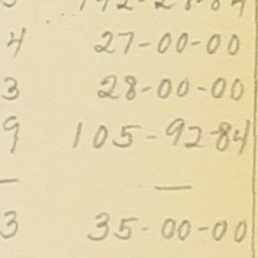 4 27-00-00
3 28-00-00
9 105-92-84
— —
3 35-00-00